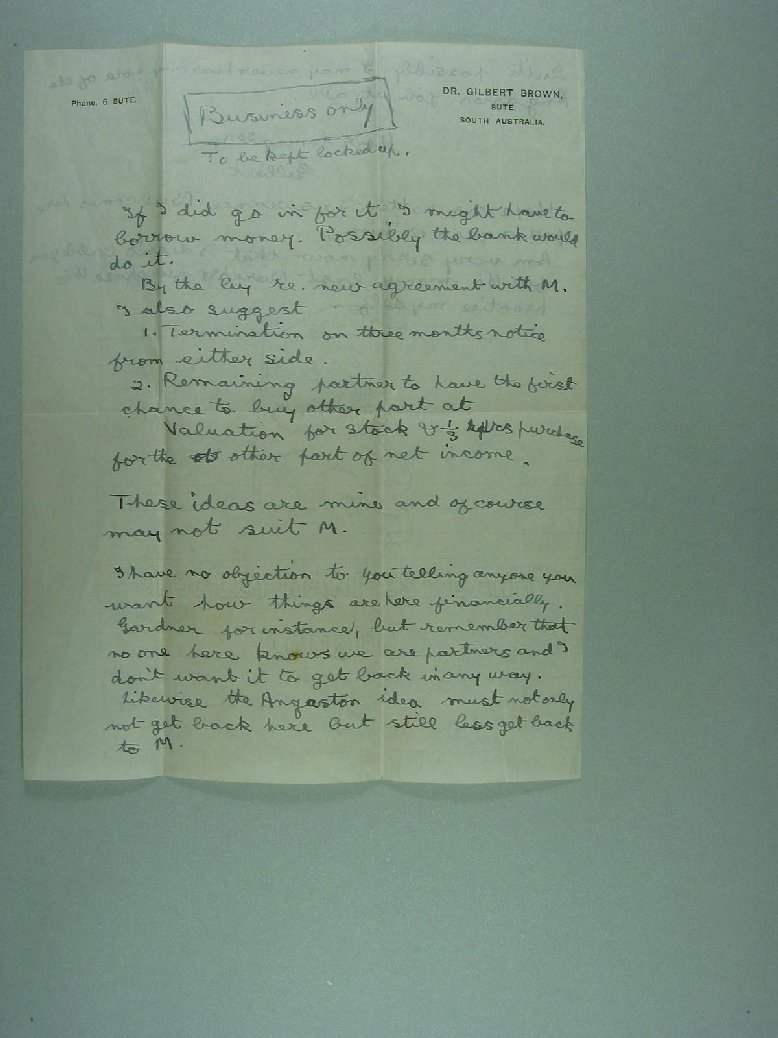 Phone. 6 BUTE.
DR. GILBERT BROWN,
BUTE,
SOUTH AUSTRALIA.
Business only
To be kept locked up.
If I did go in for it I might have to
borrow money. Possibly the bank would
do it.
By the buy re. new agreement with M.
I also suggest
1. Termination on three months notice
from either side.
2. Remaining partner to have the first
chance to buy other part at
Valuation for stock & 1/3 yrs purchase
for the other part of net income.
These ideas are mine and of course
may not suit M.
I have no objection to you telling anyone you
want how things are here financially.
Gardner for instance, but remember that
no one here knows we are partners and I
don't want it to get back in any way.
Likewise the Angaston idea must not only
not get back here but still less get back
to M.